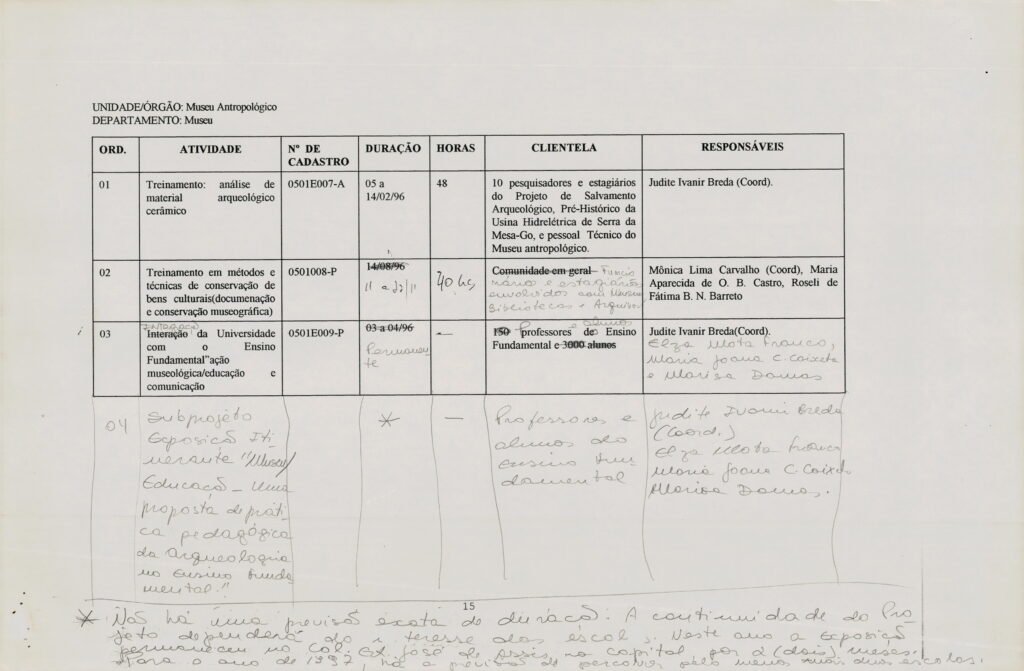 UNIDADE/ÓRGÃO: Museu Antropológico
DEPARTAMENTO: Museu
ORD. ATIVIDADE Nº DE CADASTRO DURAÇÃO HORAS CLIENTELA RESPONSÁVEIS
01
Treinamento: análise de
material arqueológico
cerâmico
0501E007-A
05 a
14/02/96
48
10 pesquisadores e estagiários
do Projeto de Salvamento
Arqueológico, Pré-Histórico da
Usina Hidrelétrica de Serra da
Mesa-Go, e pessoal Técnico do
Museu antropológico.
Judite Ivanir Breda (Coord).
02
Treinamento em métodos e
técnicas de conservação de
bens culturais(documenação
e conservação museográfica)
0501008-P
14/08/96
40 hs
Comunidade em geral Funcio
nários e estagiários
envolvidos com Museus
Bibliotecas e Arquivos
Mônica Lima Carvalho (Coord), Maria
Aparecida de O. B. Castro, Roseli de
Fátima B. N. Barreto
03
Integração
Interação da Universidade
com o Ensino
Fundamental"ação
museológica/educação e
comunicação
0501E009-P
03 a 04/96
Permanen
te
-
e alunos
150 professores do Ensino
Fundamental e 3000 alunos
Judite Ivanir Breda(Coord).
Elza Mota Franco,
Maria Joana C. Caixeta
e Marisa Damas
04
Subprojeto
Exposição Iti-
nerante "Museu/
Educação - Uma
proposta de práti
ca pedagógica
da Arqueologia
no Ensino Funda
mental."
*
-
Professores e
alunos do
Ensino Fun
damental
Judite Ivanir Breda
(Coord.)
Elza Mota Franco
Maria Joana C. Caixeta
Marisa Damas.
15
* Não há uma previsão exata de duração. A continuidade do Pro
jeto dependerá do interesse das escolas. Neste ano a Exposição
permaneceu no Col. Est. José de Assis, na capital por 2 (dois) meses.
Para o ano de 1997, há a previsão de percorrer pelo menos mais duas escolas.